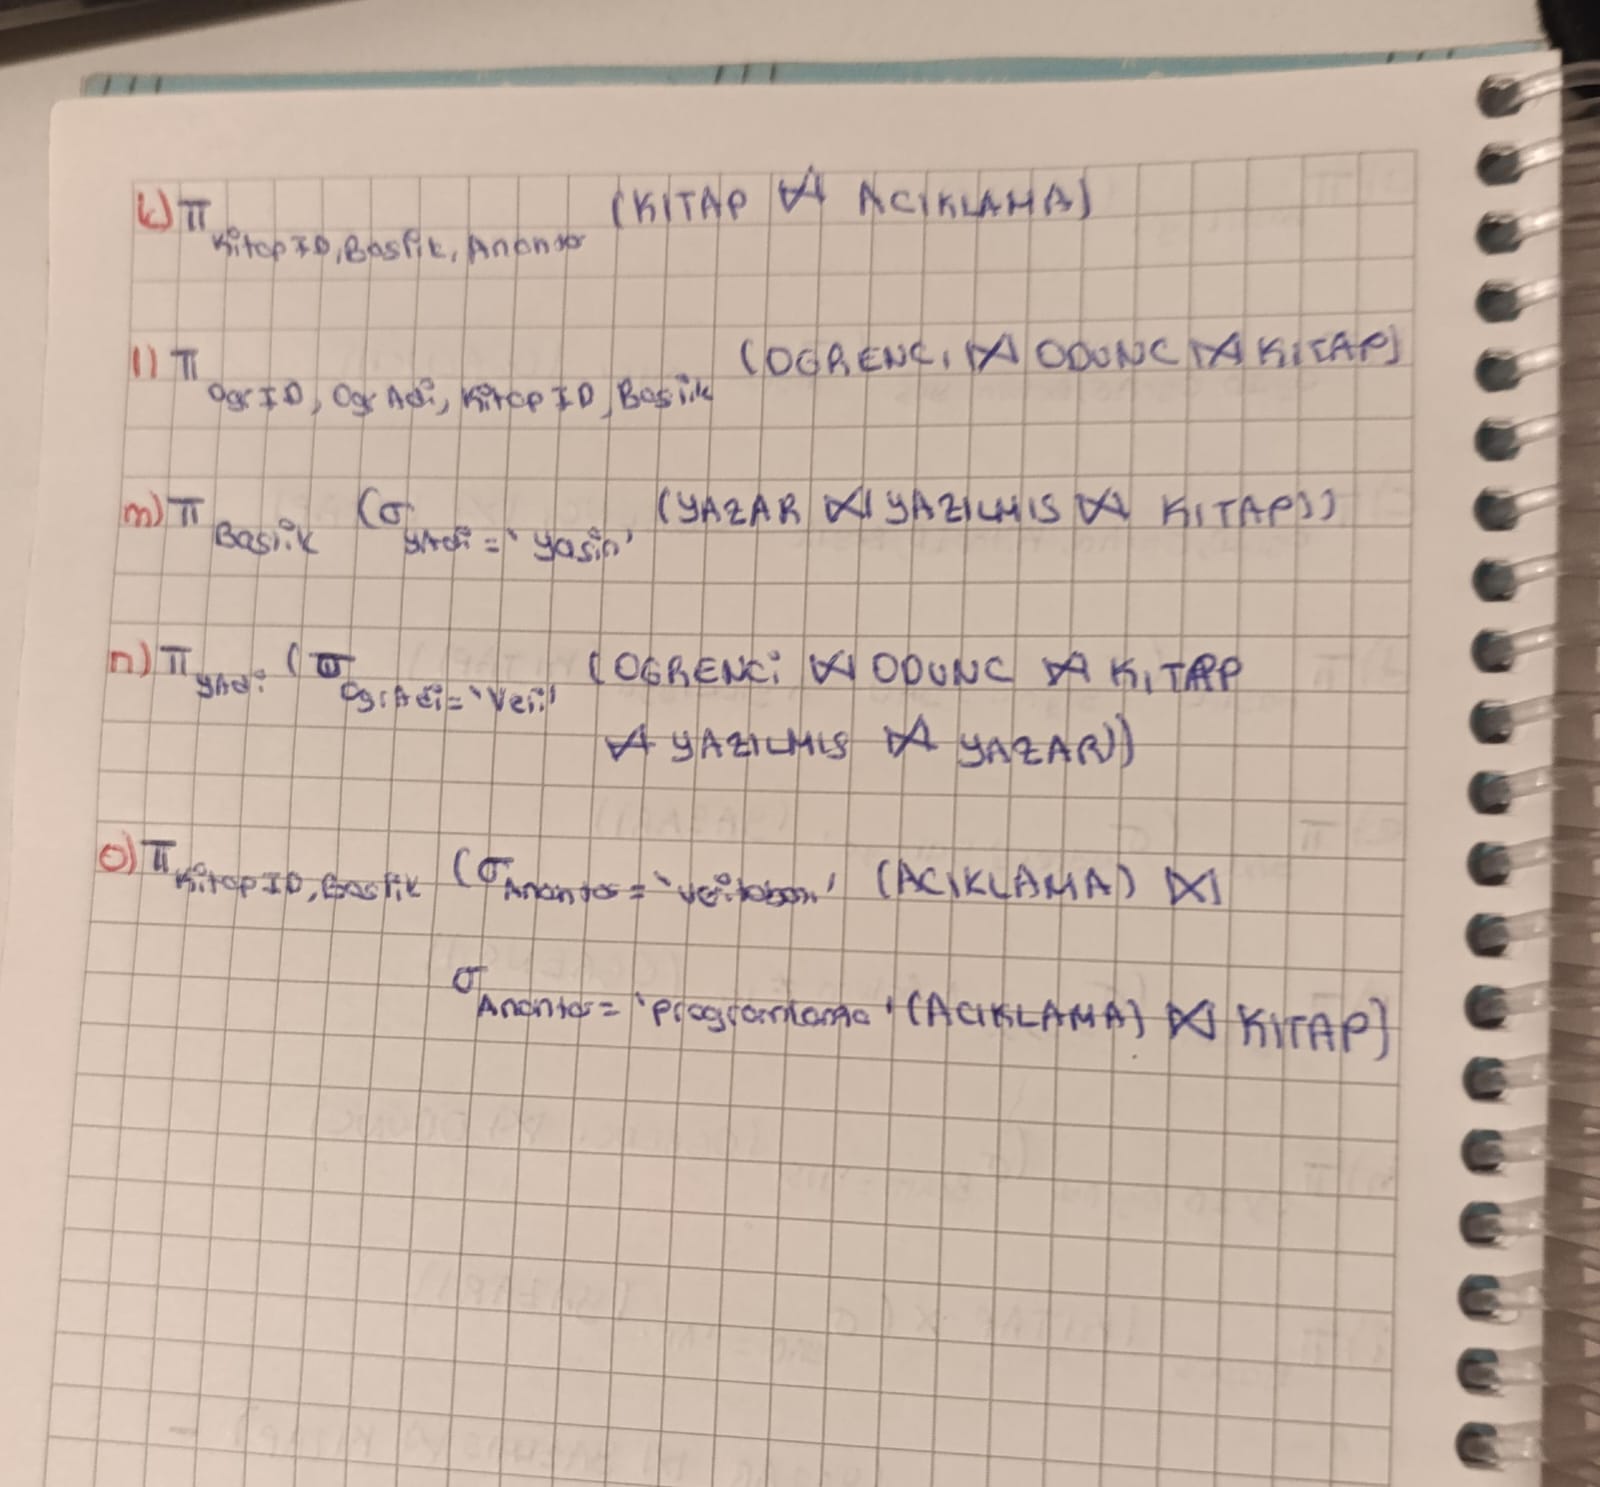 k) π KitapID, Baslik, Anahtar (KITAP ⋈ ACIKLAMA)
l) π OgrID, OgrAdi, KitapID, Baslik (OGRENCI ⋈ ODUNC ⋈ KITAP)
m) π Baslik (σ YAdi = 'Yasin' (YAZAR ⋈ YAZILMIS ⋈ KITAP))
n) π YAdi (σ OgrAdi = 'Veli' (OGRENCi ⋈ ODUNC ⋈ KITAP
⋈ YAZILMIS ⋈ YAZAR))
o) π KitapID, Baslik (σ Anahtar = 'veritabanı' (ACIKLAMA) ⋈
σ Anahtar = 'programlama' (ACIKLAMA) ⋈ KITAP)